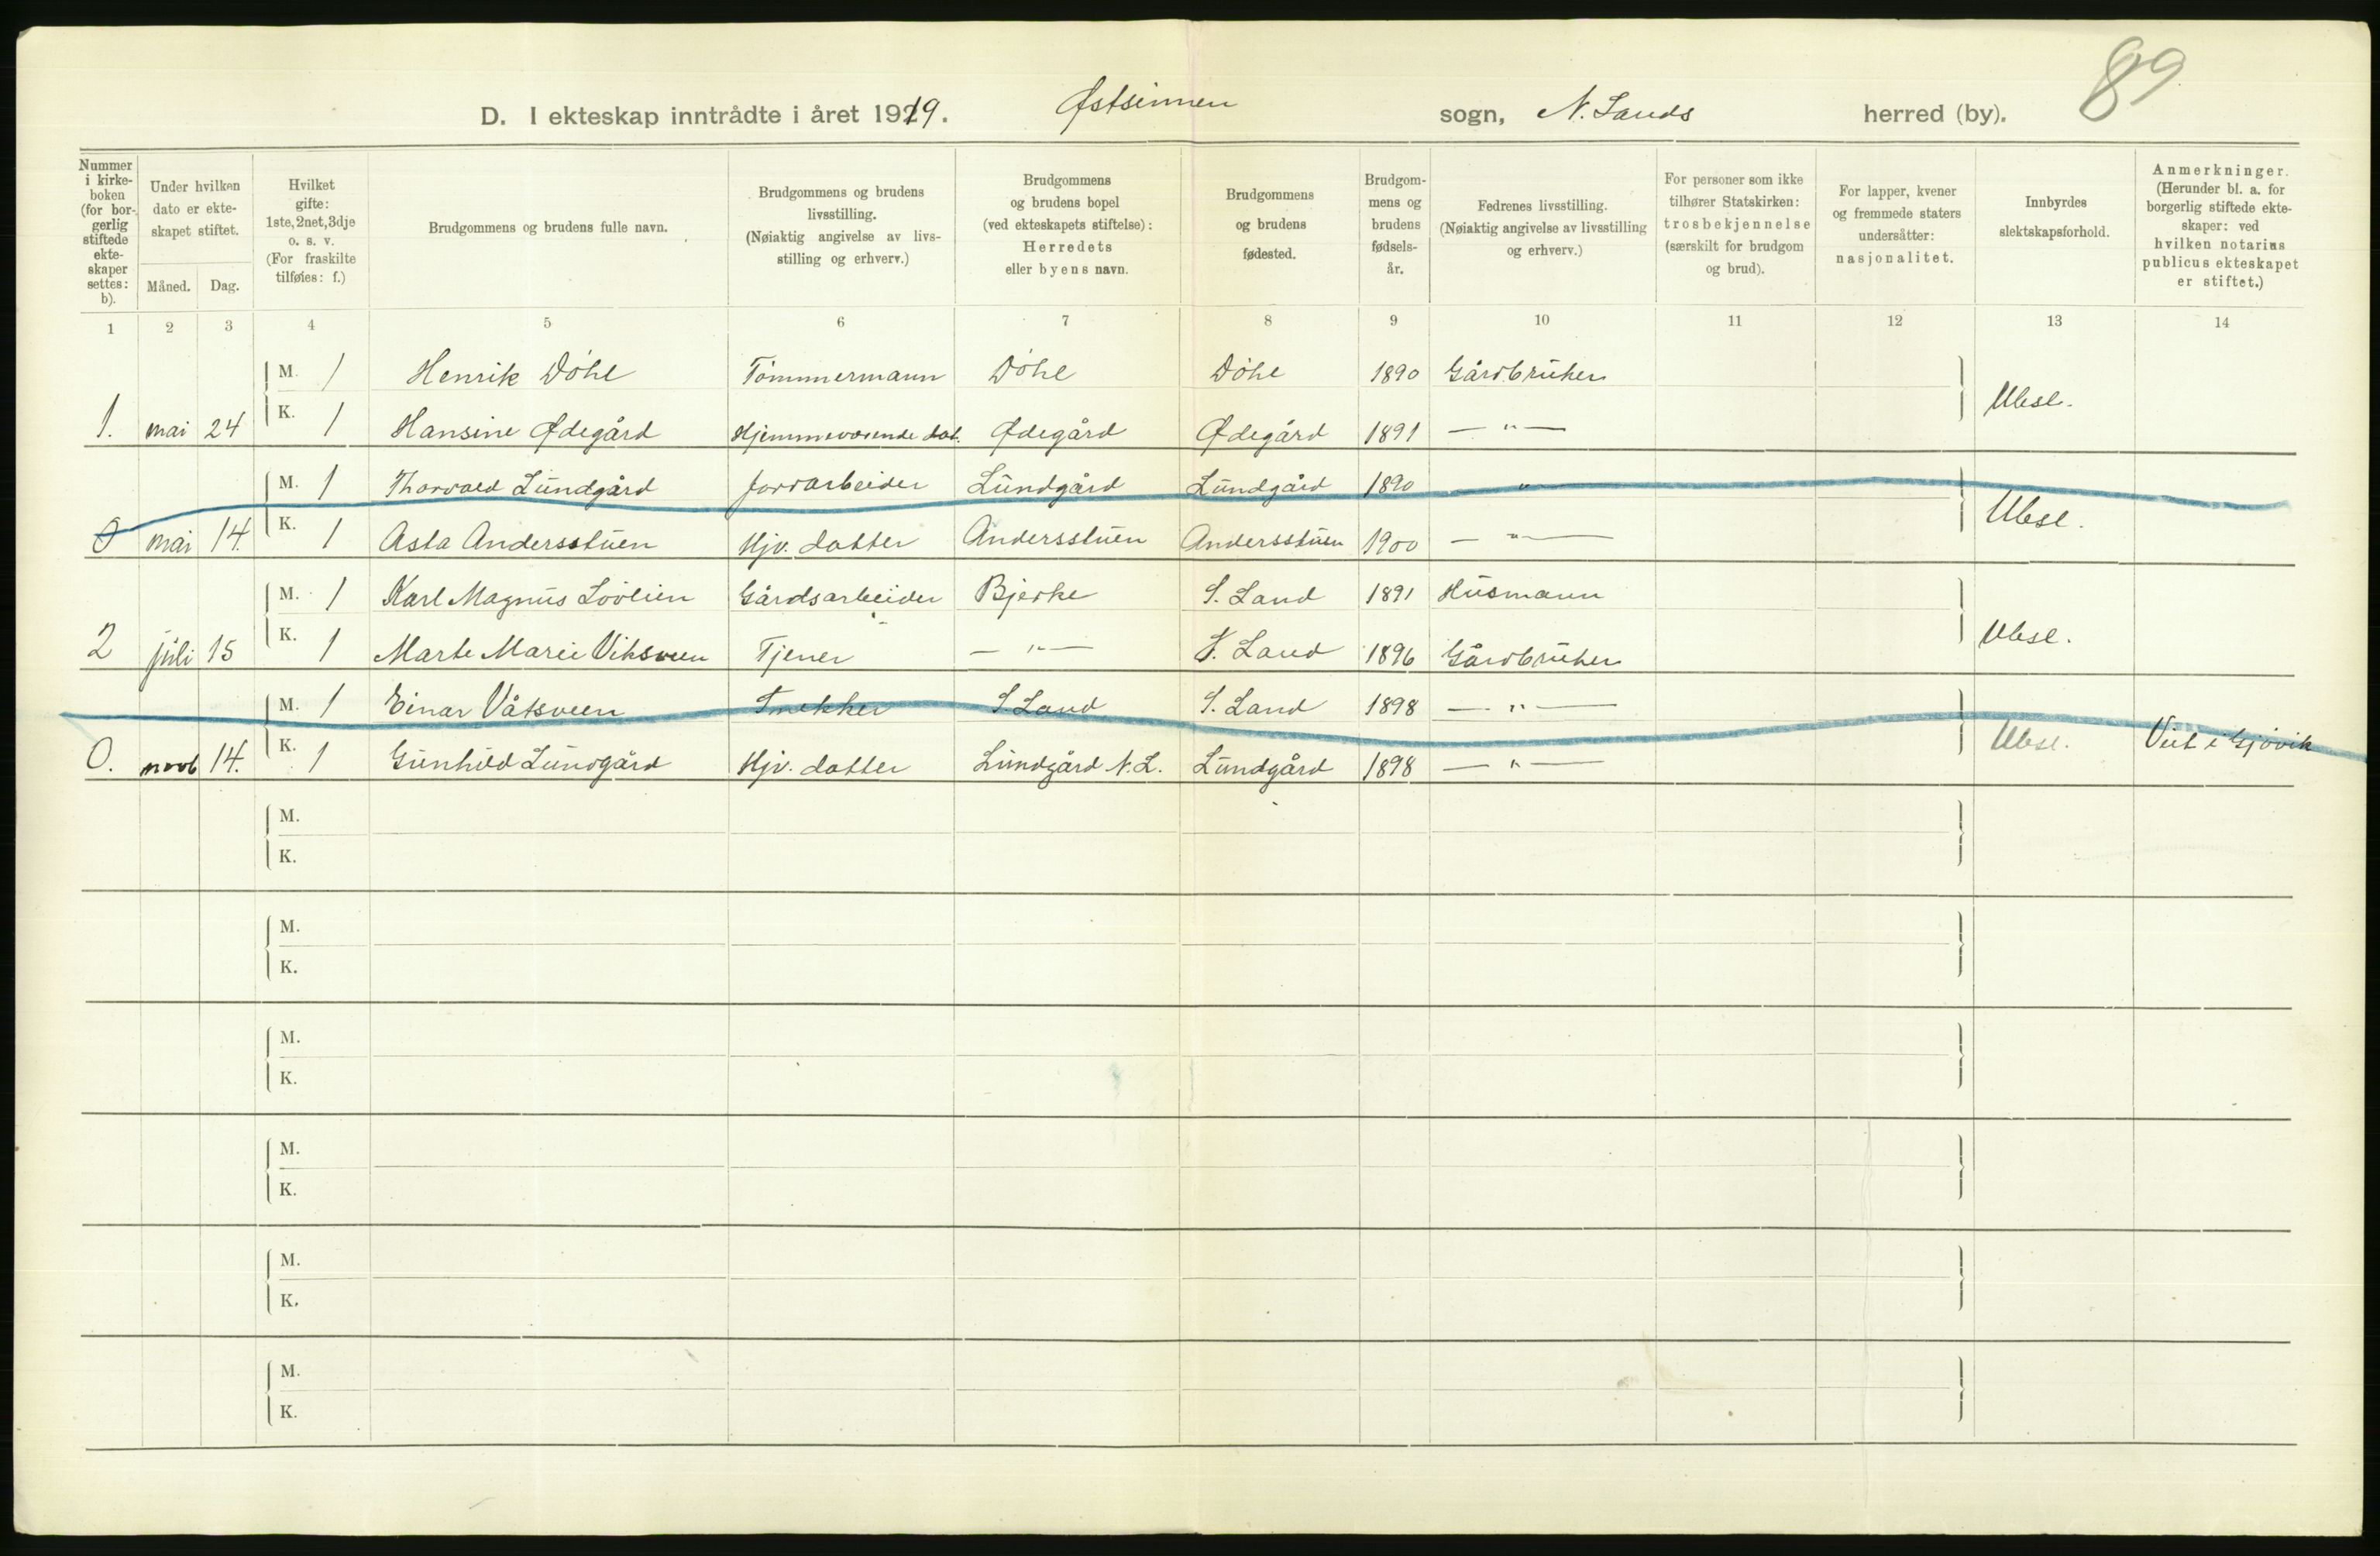 89
D. I ekteskap inntrådte i året 1919. Østsinnen sogn, N. Lands herred (by).
Nummer i kirkeboken (for borgerlig stiftede ekteskaper settes: b).
Under hvilken dato er ekteskapet stiftet.
Måned. Dag.
Hvilket gifte: 1ste, 2net, 3dje o. s. v. (For fraskilte tilføies: f.)
Brudgommens og brudens fulle navn.
Brudgommens og brudens livsstilling. (Nøiaktig angivelse av livsstilling og erhverv.)
Brudgommens og brudens bopel (ved ekteskapets stiftelse): Herredets eller byens navn.
Brudgommens og brudens fødested.
Brudgommens og brudens fødselsår.
Fedrenes livsstilling. (Nøiaktig angivelse av livsstilling og erhverv.)
For personer som ikke tilhører Statskirken: trosbekjennelse (særskilt for brudgom og brud).
For lapper, kvener og fremmede staters undersåtter: nasjonalitet.
Innbyrdes slektskapsforhold.
Anmerkninger. (Herunder bl. a. for borgerlig stiftede ekteskaper: ved hvilken notarius publicus ekteskapet er stiftet.)
1 2 3 4 5 6 7 8 9 10 11 12 13 14
M. 1 Henrik Döhl Tömmermann Döhl Döhl 1890 Gårdbruker
1. mai 24 K. 1 Hansine Ødegård Hjemmeværende dat. Ødegård Ødegård 1891 — " — Ubesl.
M. 1 Thorvald Lundgård Jordarbeider Lundgård Lundgård 1890 — " —
0 mai 14. K. 1 Asta Andersstuen Hjv. datter Andersstuen Andersstuen 1900 — " — Ubesl.
M. 1 Karl Magnus Lövlien Gårdsarbeider Bjerke S. Land 1891 Husmann
2 juli 15 K. 1 Marte Marie Viksveen Tjener — " — S. Land 1896 Gårdbruker Ubesl.
M. 1 Einar Våtsveen Snekker S. Land S. Land 1898 — " —
0. novb 14. K. 1 Gunhild Lundgård Hjv. datter Lundgård N. L. Lundgård 1898 — " — Ubesl. Viet i Gjövik
M.
K.
M.
K.
M.
K.
M.
K.
M.
K.
M.
K.